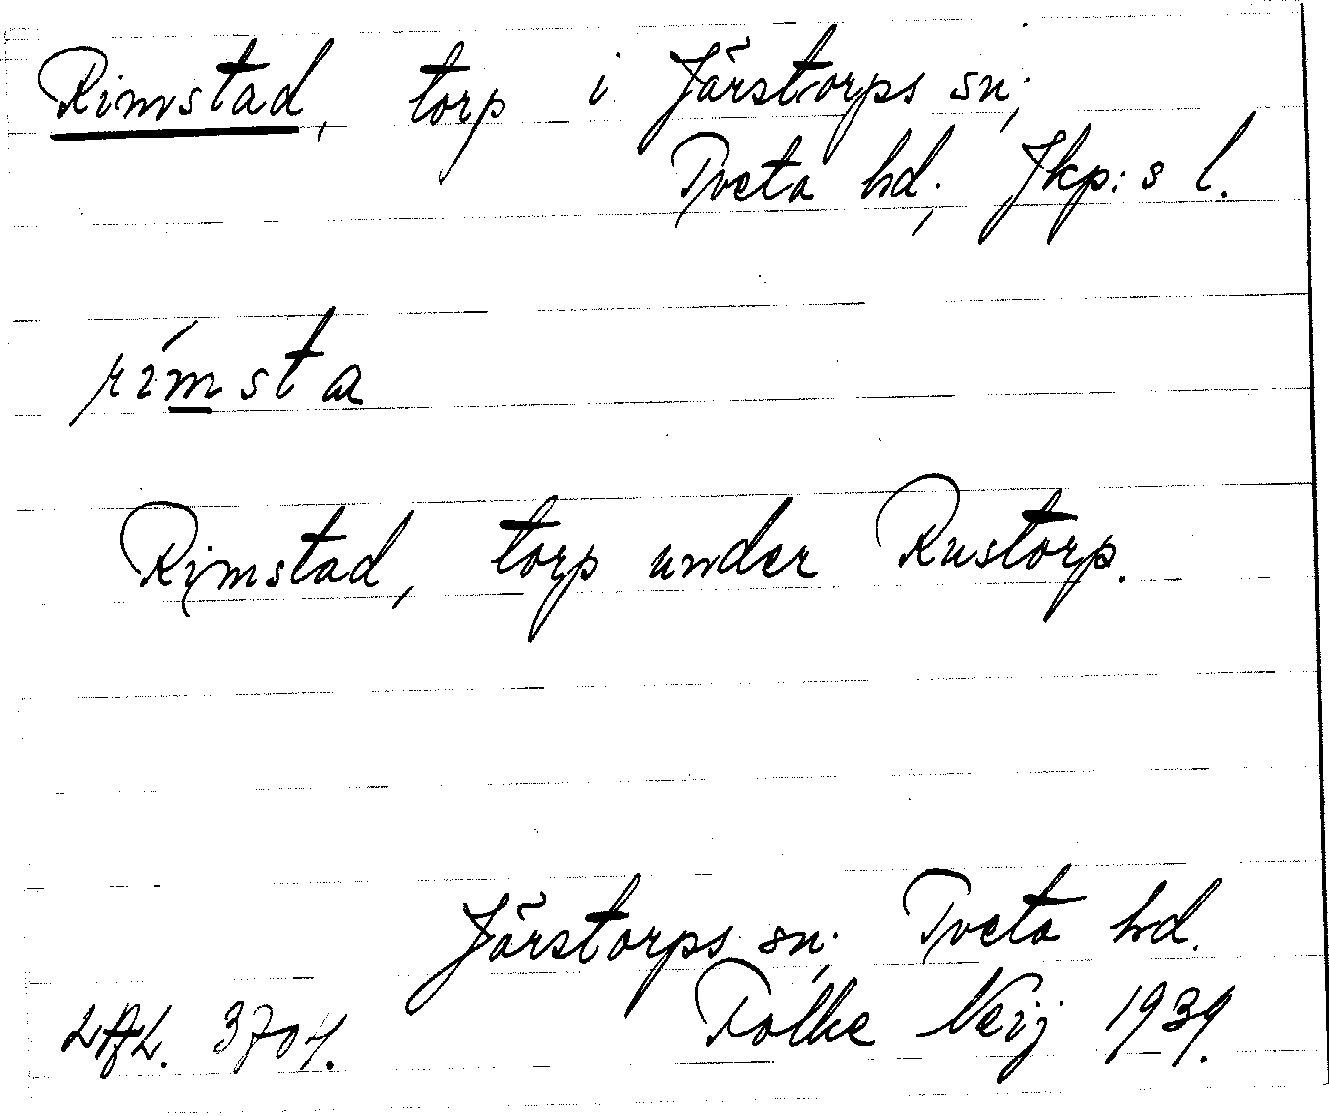 Rimstad, torp i Järstorps sn;
Tveta hd; Jkp:s l.
rímsta
Rimstad, torp under Rustorp.
Järstorps sn; Tveta hd.
LAL. 3704. Folke Neij 1939.